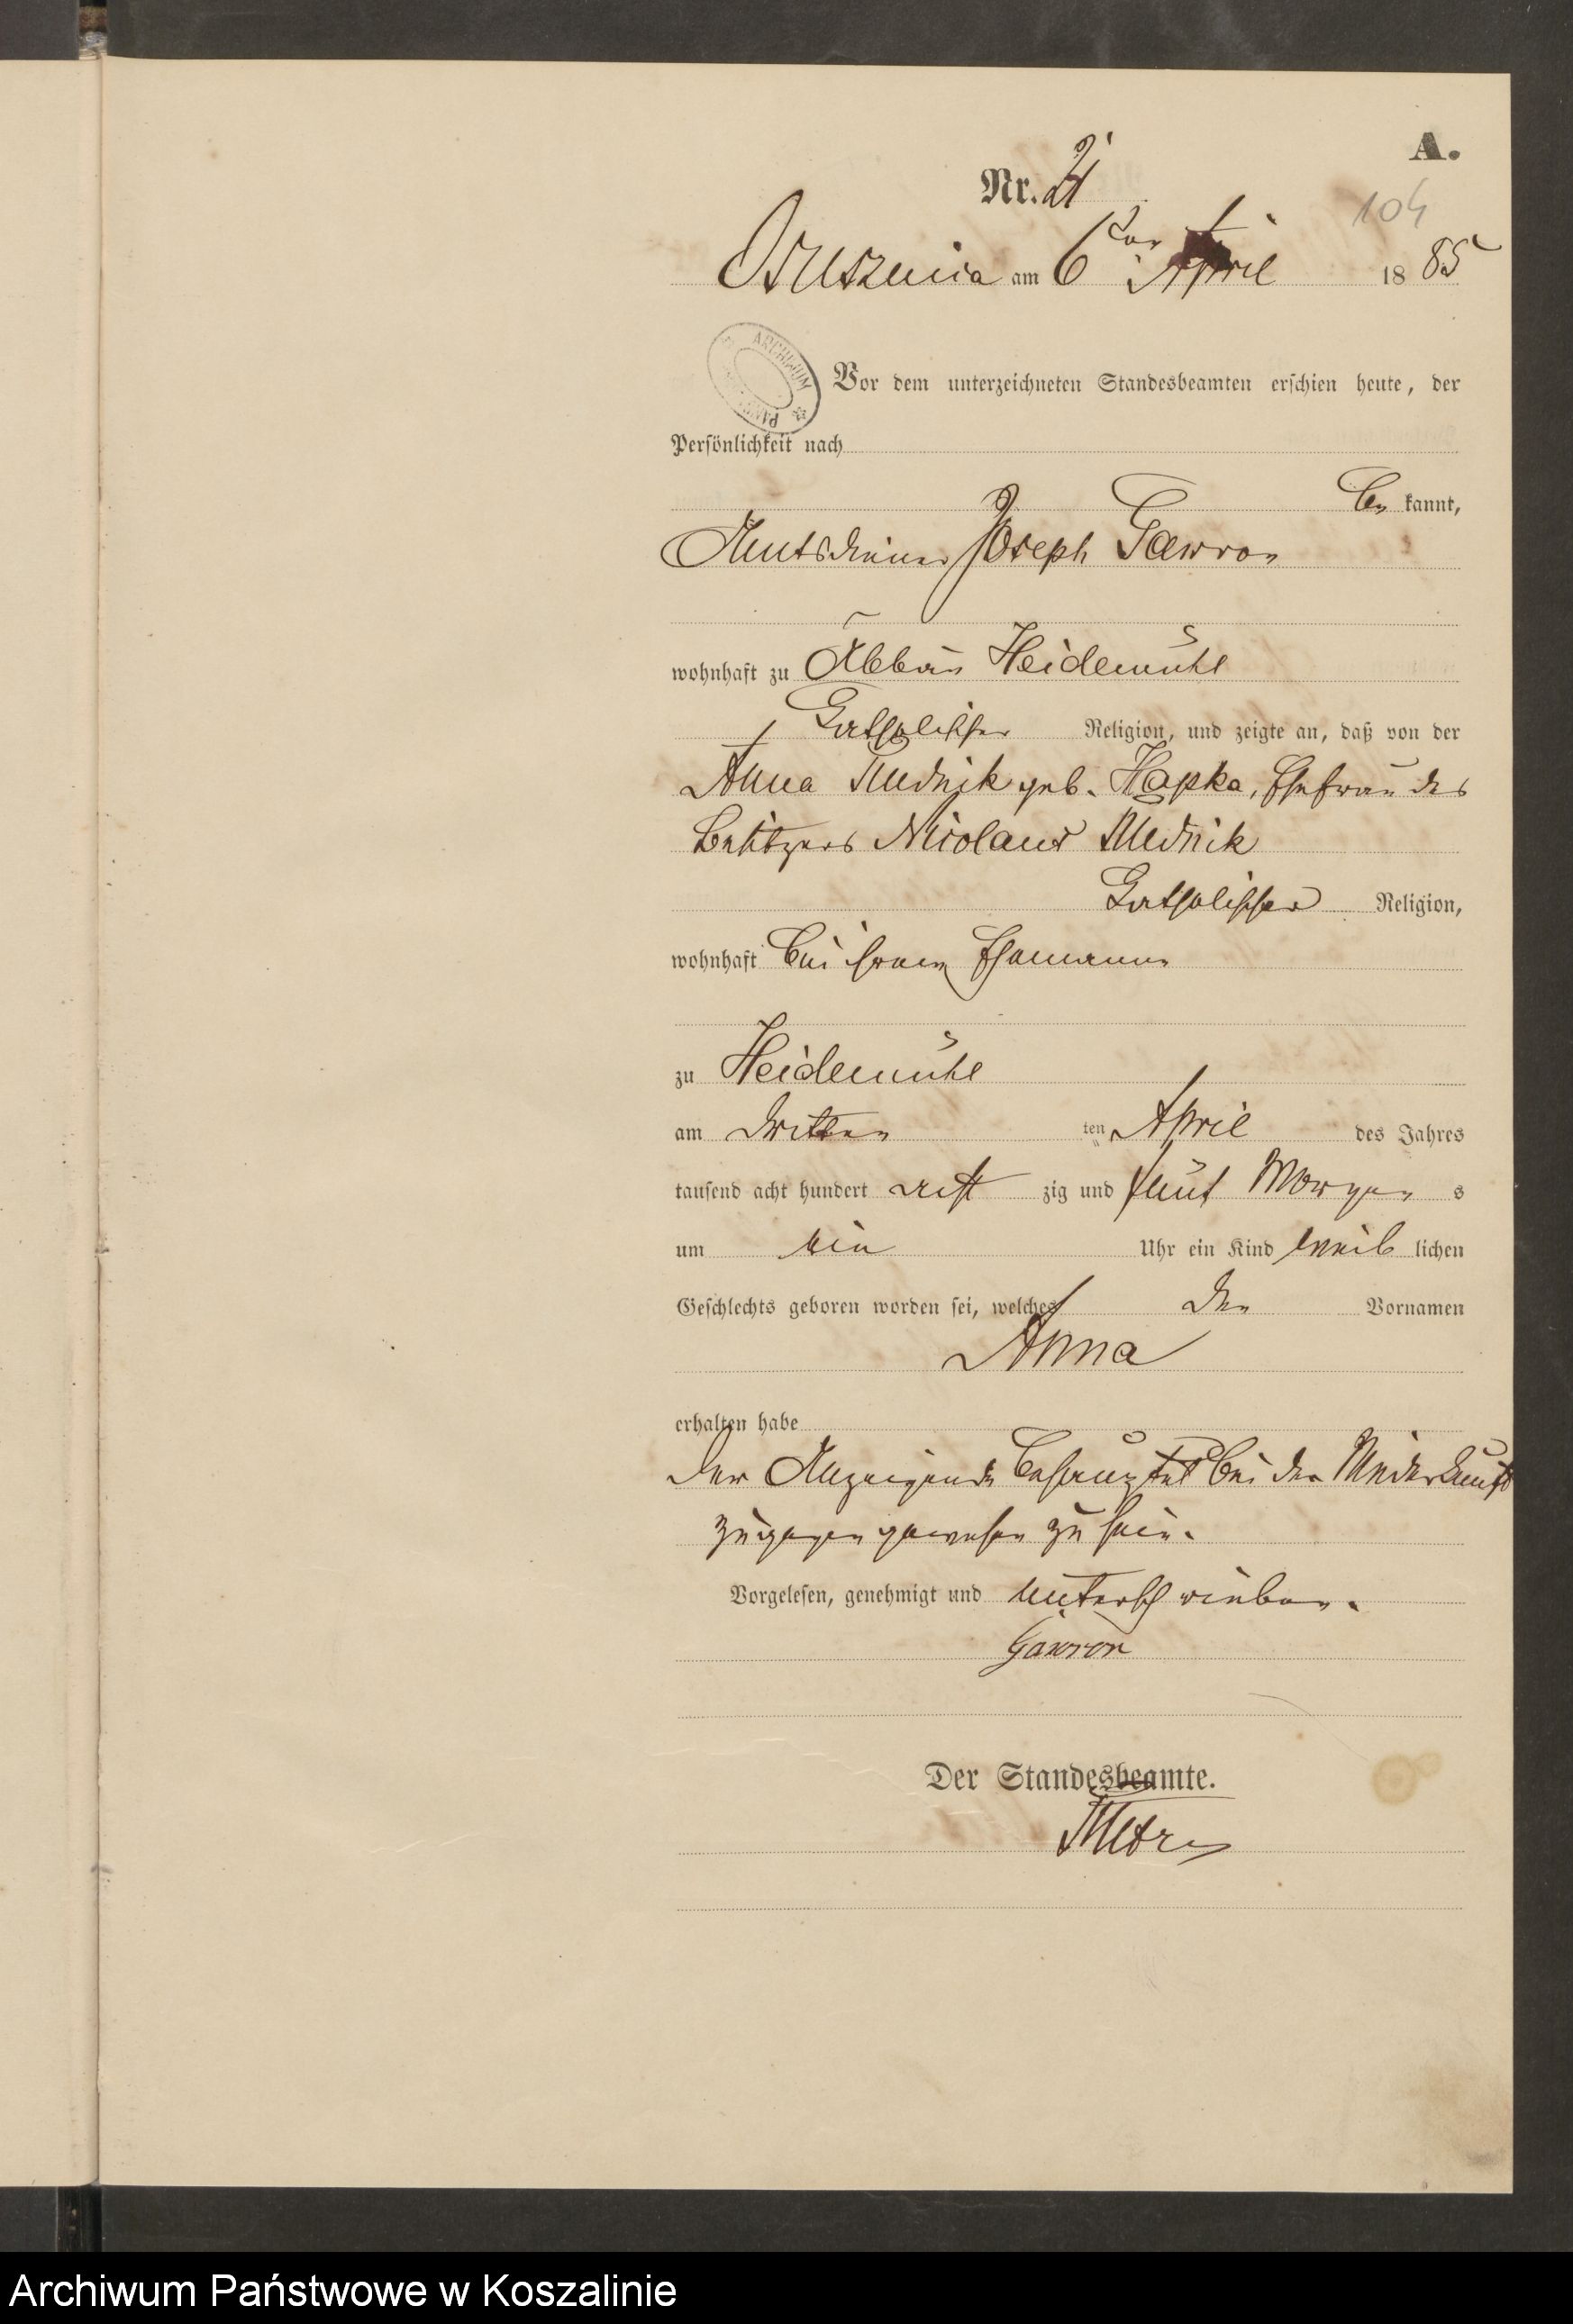 A.
Nr. 21
104
Osusznica am 6ten April 1885
ARCHIWUM
Vor dem unterzeichneten Standesbeamten erschien heute, der
Persönlichkeit nach
be kannt,
Amtsdiener Joseph Gawron
wohnhaft zu Abbau Heidemühl
katholischer Religion, und zeigte an, daß von der
Anna Rudnik geb. Hapka, Ehefrau des
Besitzers Nicolaus Rudnik
katholischer Religion,
wohnhaft bei ihrem Ehemann
zu Heidemühl
am dritten ten April des Jahres
tausend acht hundert acht zig und fünf Morgen s
um ein Uhr ein Kind weib lichen
Geschlechts geboren worden sei, welches den Vornamen
Anna
erhalten habe
Der Anzeigende bei der Niederkunft
zugegen gewesen zu sein.
Vorgelesen, genehmigt und unterschrieben.
Gawron
Der Standesbeamte.
Archiwum Państwowe w Koszalinie